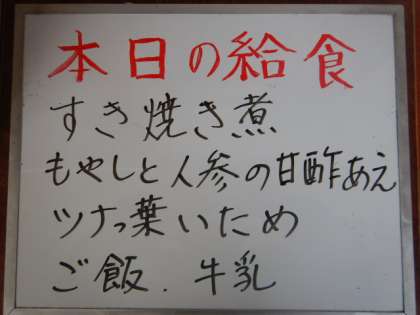 本日の給食
すき焼き煮
もやしと人参の甘酢あえ
ツナっ葉いため
ご飯.牛乳